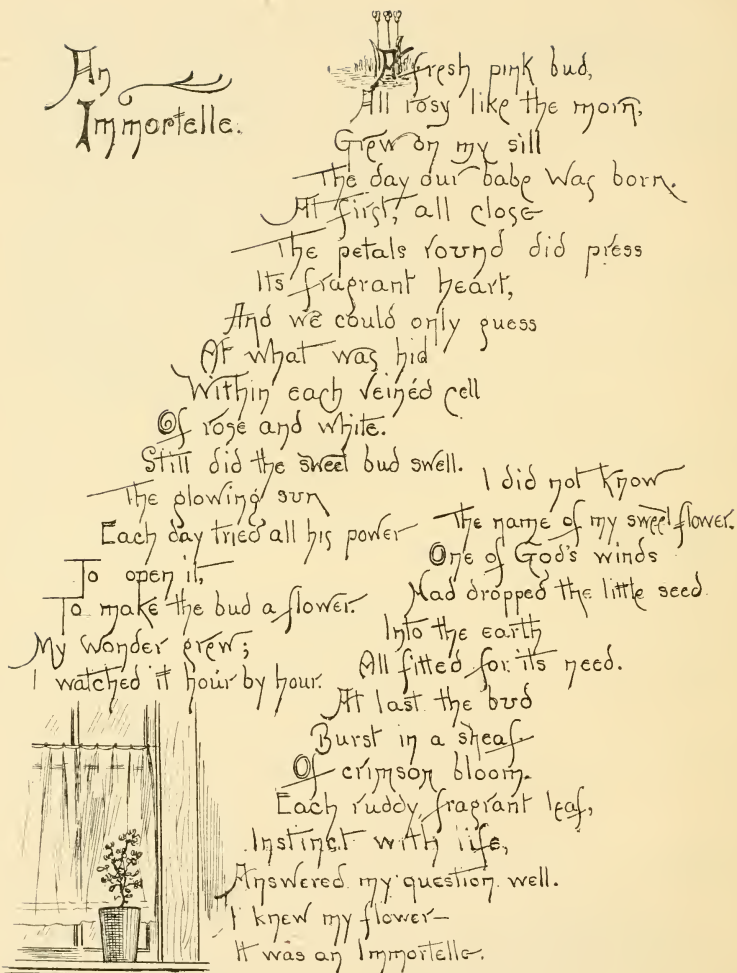 An
Immortelle.
A fresh pink bud,
All rosy like the morn,
Grew on my sill
The day our babe was born.
At first, all close
The petals round did press
Its fragrant heart,
And we could only guess
At what was hid
Within each veinéd cell
Of rose and white.
Still did the sweet bud swell.
The glowing sun
Each day tried all his power
To open it,
To make the bud a flower.
My wonder grew;
I watched it hour by hour.
I did not know
The name of my sweet flower.
One of God's winds
Had dropped the little seed
Into the earth
All fitted for its need.
At last the bud
Burst in a sheaf
Of crimson bloom.
Each ruddy, fragrant leaf,
Instinct with life,
Answered my question well.
I knew my flower—
It was an Immortelle.